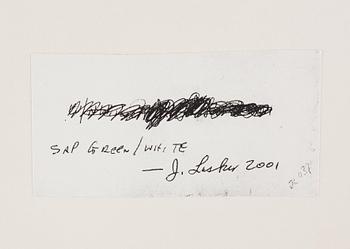 SAP GREEN/WHITE
— J. Lasker 2001